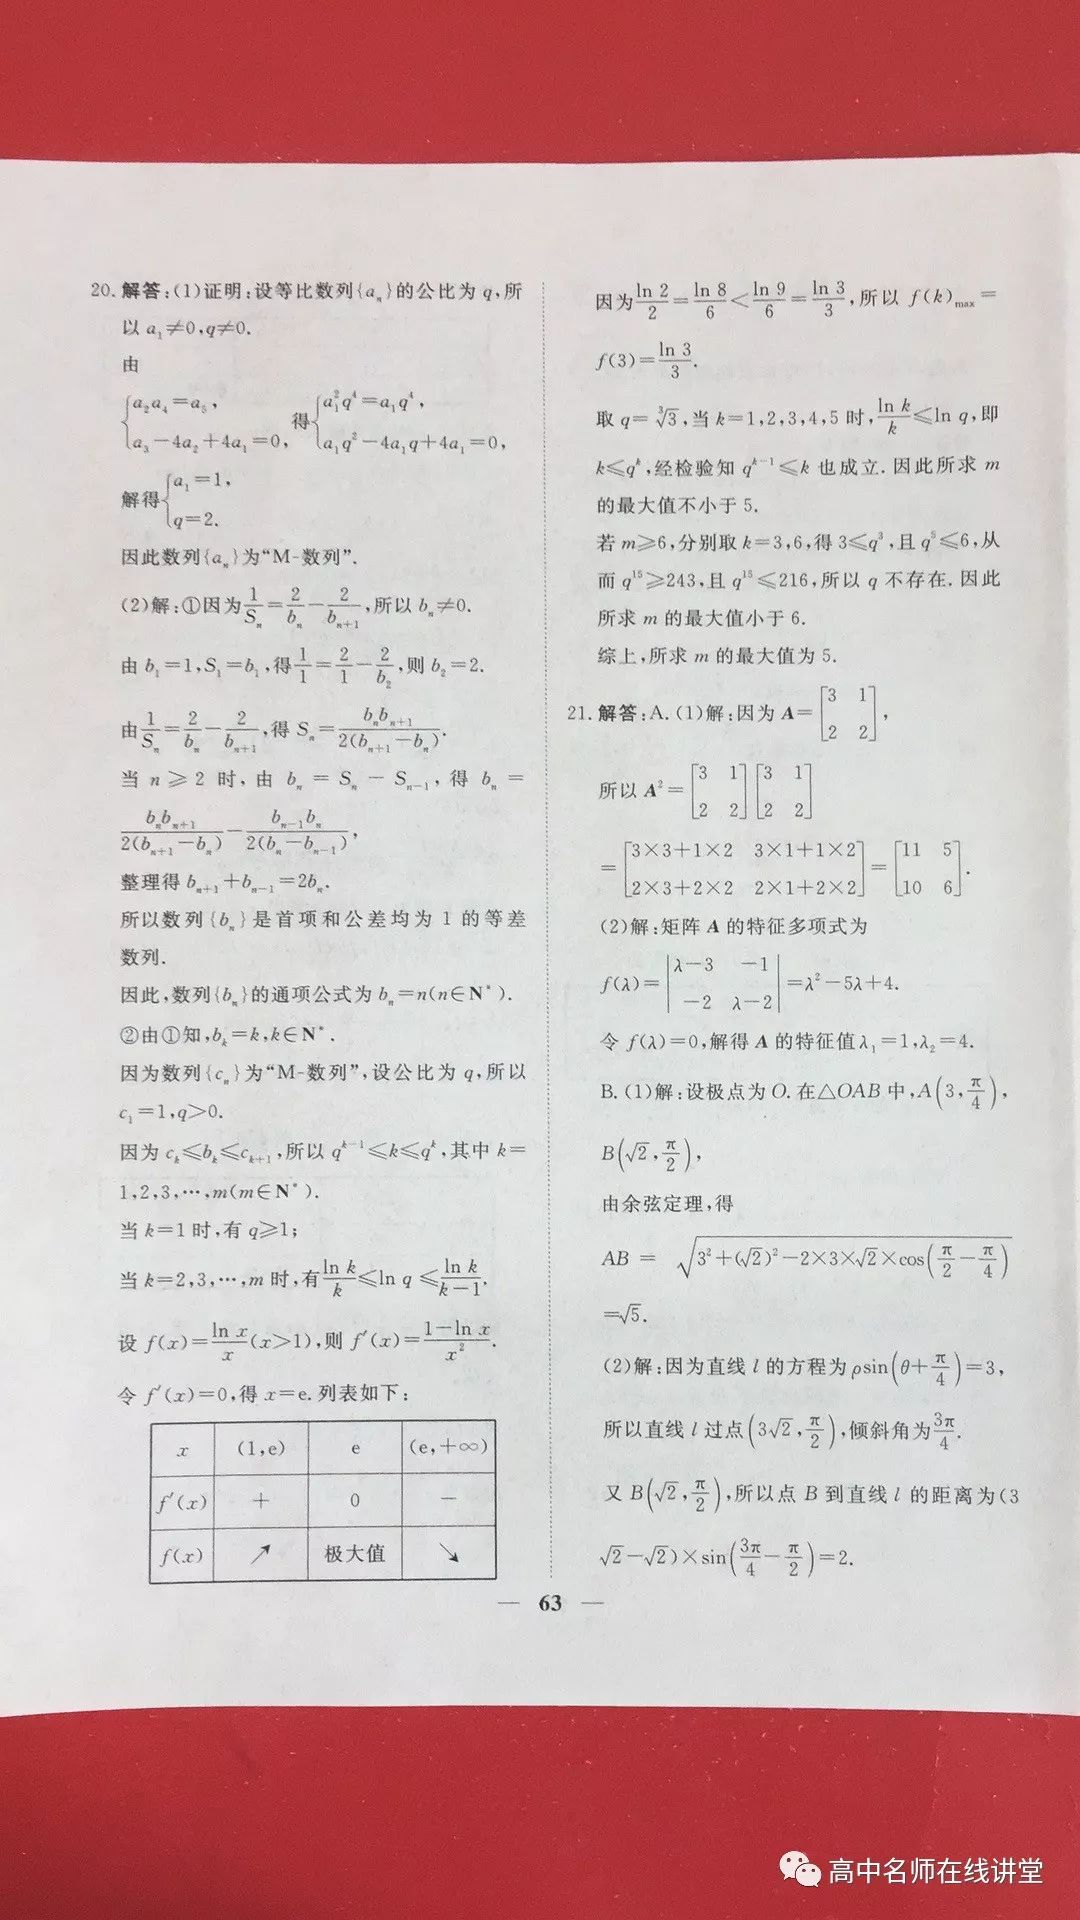 20. 解答:(1)证明:设等比数列{aₙ}的公比为 q,所
以 a₁≠0,q≠0.
由
{a₂a₄=a₅, a₃-4a₂+4a₁=0, 得{a₁²q⁴=a₁q⁴, a₁q²-4a₁q+4a₁=0,
解得{a₁=1, q=2.
因此数列{aₙ}为“M-数列”.
(2)解:①因为1/Sₙ=2/bₙ-2/bₙ₊₁,所以 bₙ≠0.
由 b₁=1,S₁=b₁,得1/1=2/1-2/b₂,则 b₂=2.
由1/Sₙ=2/bₙ-2/bₙ₊₁,得 Sₙ=bₙbₙ₊₁/2(bₙ₊₁-bₙ).
当 n≥2 时,由 bₙ=Sₙ-Sₙ₋₁,得 bₙ=
bₙbₙ₊₁/2(bₙ₊₁-bₙ)-bₙ₋₁bₙ/2(bₙ-bₙ₋₁),
整理得 bₙ₊₁+bₙ₋₁=2bₙ.
所以数列{bₙ}是首项和公差均为 1 的等差
数列.
因此,数列{bₙ}的通项公式为 bₙ=n(n∈N*).
②由①知,bₖ=k,k∈N*.
因为数列{cₙ}为“M-数列”,设公比为 q,所以
c₁=1,q>0.
因为 cₖ≤bₖ≤cₖ₊₁,所以 qᵏ⁻¹≤k≤qᵏ,其中 k=
1,2,3,…,m(m∈N*).
当 k=1 时,有 q≥1;
当 k=2,3,…,m 时,有ln k/k≤ln q≤ln k/k-1.
设 f(x)=ln x/x(x>1),则 f′(x)=1-ln x/x².
令 f′(x)=0,得 x=e.列表如下:
x (1,e) e (e,+∞)
f′(x) + 0 -
f(x) ↗ 极大值 ↘
因为ln 2/2=ln 8/6<ln 9/6=ln 3/3,所以 f(k)max=
f(3)=ln 3/3.
取 q=∛3,当 k=1,2,3,4,5 时,ln k/k≤ln q,即
k≤qᵏ,经检验知 qᵏ⁻¹≤k 也成立.因此所求 m
的最大值不小于 5.
若 m≥6,分别取 k=3,6,得 3≤q³,且 q⁵≤6,从
而 q¹⁵≥243,且 q¹⁵≤216,所以 q 不存在.因此
所求 m 的最大值小于 6.
综上,所求 m 的最大值为 5.
21. 解答:A.(1)解:因为 A=[3 1; 2 2],
所以 A²=[3 1; 2 2][3 1; 2 2]
=[3×3+1×2 3×1+1×2; 2×3+2×2 2×1+2×2]=[11 5; 10 6].
(2)解:矩阵 A 的特征多项式为
f(λ)=|λ-3 -1; -2 λ-2|=λ²-5λ+4.
令 f(λ)=0,解得 A 的特征值 λ₁=1,λ₂=4.
B.(1)解:设极点为 O.在△OAB 中,A(3,π/4),
B(√2,π/2),
由余弦定理,得
AB=√(3²+(√2)²-2×3×√2×cos(π/2-π/4))
=√5.
(2)解:因为直线 l 的方程为 ρsin(θ+π/4)=3,
所以直线 l 过点(3√2,π/2),倾斜角为3π/4.
又 B(√2,π/2),所以点 B 到直线 l 的距离为(3
√2-√2)×sin(3π/4-π/2)=2.
— 63 —
高中名师在线讲堂